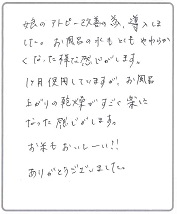 娘のアトピー改善の為、導入しま
した。お風呂の水もとてもやわらか
くなった様な感じがします。
1ヶ月使用していますが、お風呂
上がりの乾燥がすごく楽に
なった感じがします。
お米もおいしーい!!
ありがとうございました。